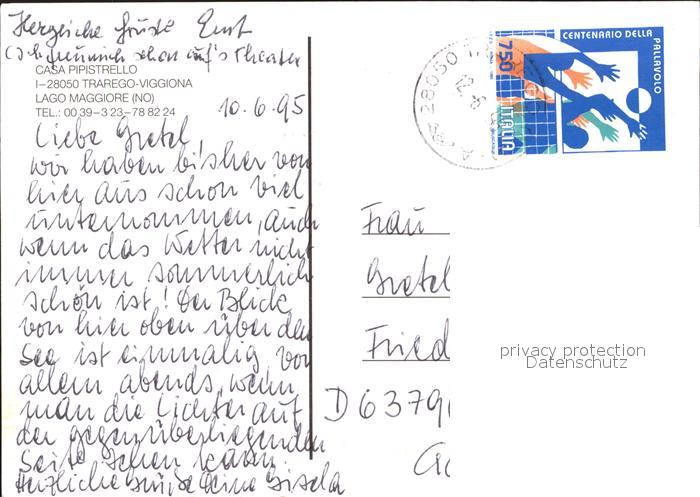 Herzliche Grüße Ernst
(Ich freu mich schon auf's Theater
CASA PIPISTRELLO
I–28050 TRAREGO-VIGGIONA
LAGO MAGGIORE (NO)
TEL.: 00 39–3 23–78 82 24
10.6.95
Liebe Gretel
wir haben bisher von
hier aus schon viel
unternommen, auch
wenn das Wetter nicht
immer sommerlich
schön ist! Der Blick
von hier oben über den
See ist einmalig vor
allem abends, wenn
man die Lichter auf
der gegenüberliegenden
Seite sehen kann
Herzliche Grüße Deine Gisela
28050
12.6
750
ITALIA
CENTENARIO DELLA
PALLAVOLO
Frau
Gretel
Fried
D 6379
privacy protection
Datenschutz